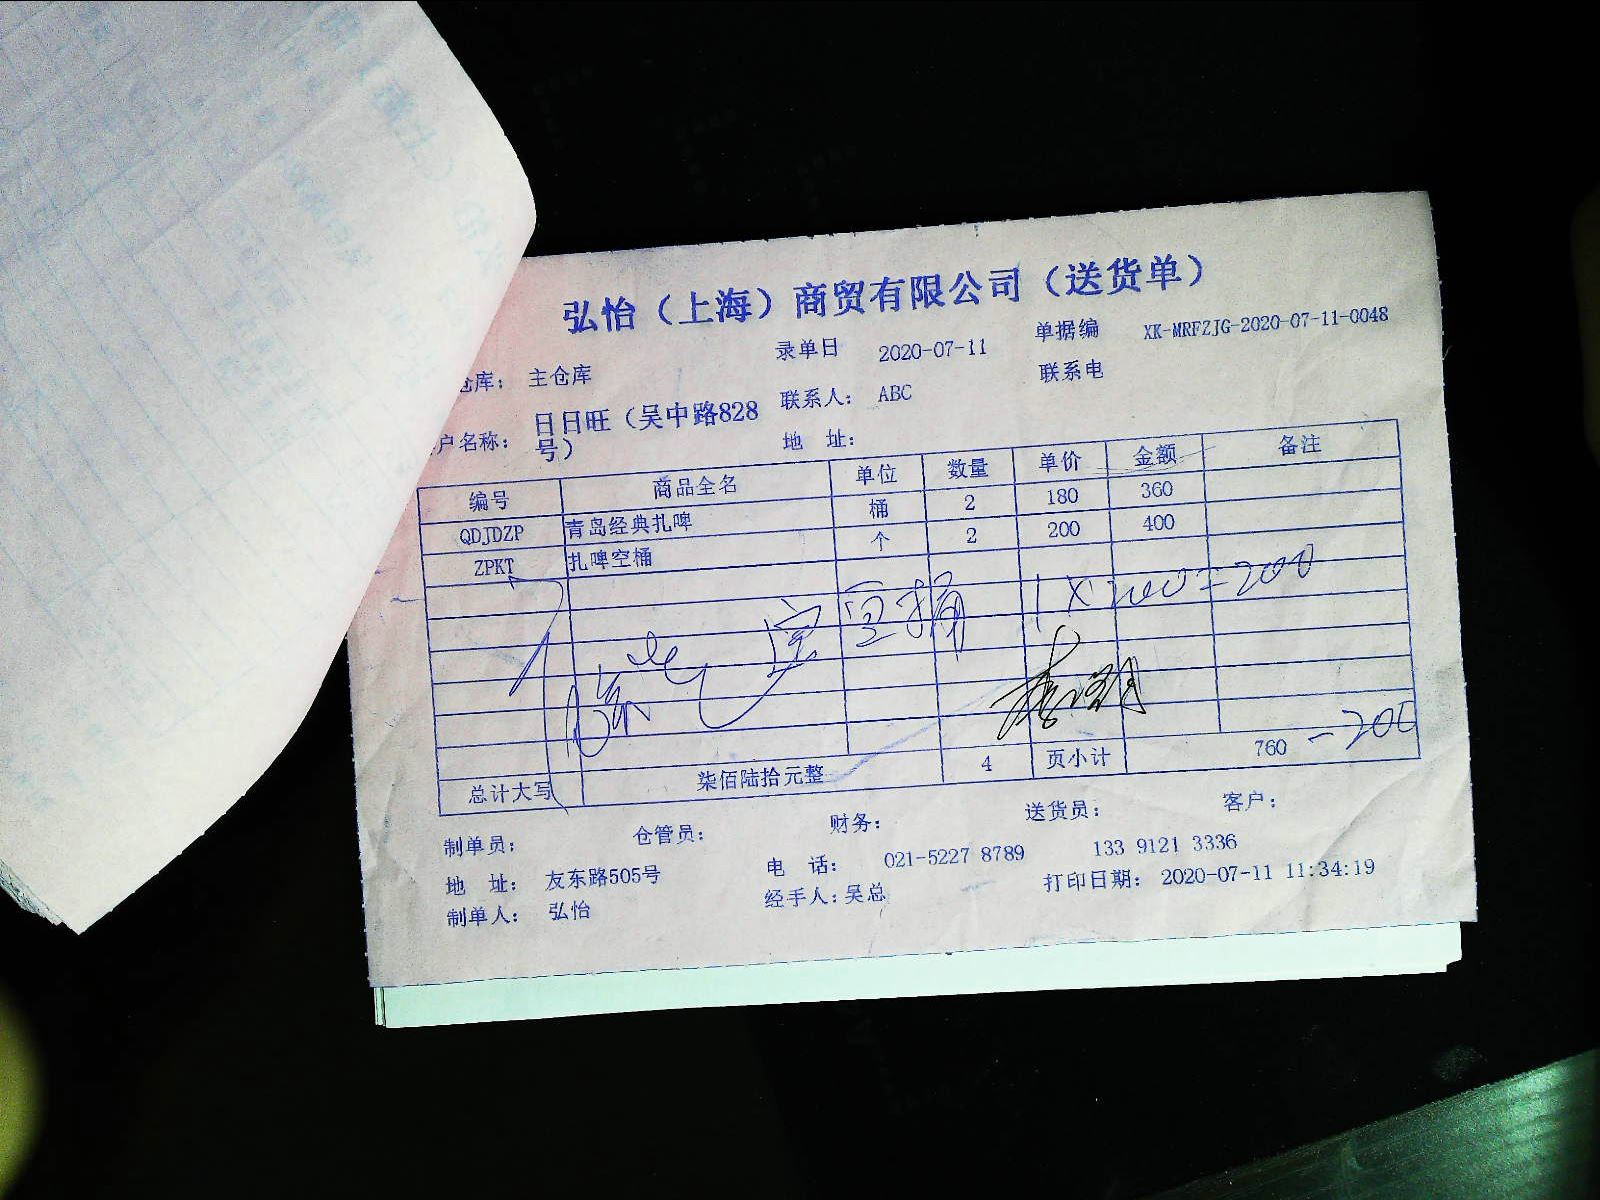 弘怡（上海）商贸有限公司（送货单）
仓库： 主仓库 录单日 2020-07-11 单据编 XK-MRFZJG-2020-07-11-0048
户名称： 日日旺（吴中路828号） 联系人： ABC 联系电
地 址：
编号 商品全名 单位 数量 单价 金额 备注
QDJDZP 青岛经典扎啤 桶 2 180 360
ZPKT 扎啤空桶 个 2 200 400
空桶 1×200=200
总计大写 柒佰陆拾元整 4 页小计 760 -200
制单员： 仓管员： 财务： 送货员： 客户：
地 址： 友东路505号 电 话： 021-5227 8789 133 9121 3336
制单人： 弘怡 经手人：吴总 打印日期： 2020-07-11 11:34:19